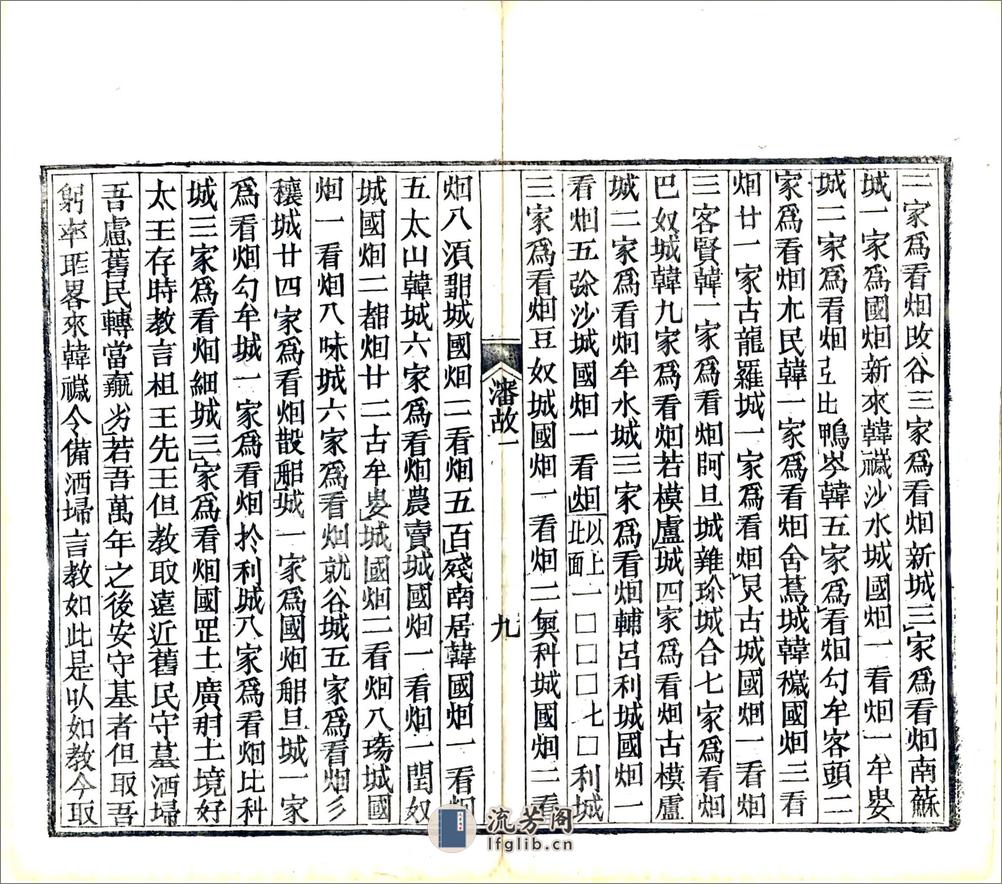 三家爲看烟改谷三家爲看烟新城三家爲看烟南蘇
城一家爲國烟新來韓穢沙水城國烟一看烟一牟婁
城二家爲看烟弖比鴨岑韓五家爲看烟勾牟客頭二
家爲看烟朩民韓一家爲看烟舍蔦城韓穢國烟三看
烟廿一家古龍羅城一家爲看烟炅古城國烟一看烟
三客賢韓一家爲看烟阿旦城雜珎城合七家爲看烟
巴奴城韓九家爲看烟若模盧城四家爲看烟古模盧
城二家爲看烟牟水城三家爲看烟輔呂利城國烟一
看烟五弥沙城國烟一看烟以上此面一□□□□七□利城
三家爲看烟豆奴城國烟一看烟二奧科城國烟二看
瀋故一
九
烟八須城國烟二看烟五百殘南居韓國烟一看烟
五太山韓城六家爲看烟農賣城國烟一看烟一閏奴
城國烟二都烟廿二古牟婁城國烟二看烟八瑒城國
烟一看烟八味城六家爲看烟就谷城五家爲看烟彡
穰城廿四家爲看烟散那城一家爲國烟船旦城一家
爲看烟勾牟城一家爲看烟於利城八家爲看烟比科
城三家爲看烟細城三家爲看烟國罡土廣開土境好
太王存時教言祖王先王但教取遠近舊民守墓洒掃
吾慮舊民轉當羸劣若吾萬年之後安守墓者但取吾
躬率所畧來韓穢令備洒掃言教如此是以如教令取
流芳阁
lfglib.cn